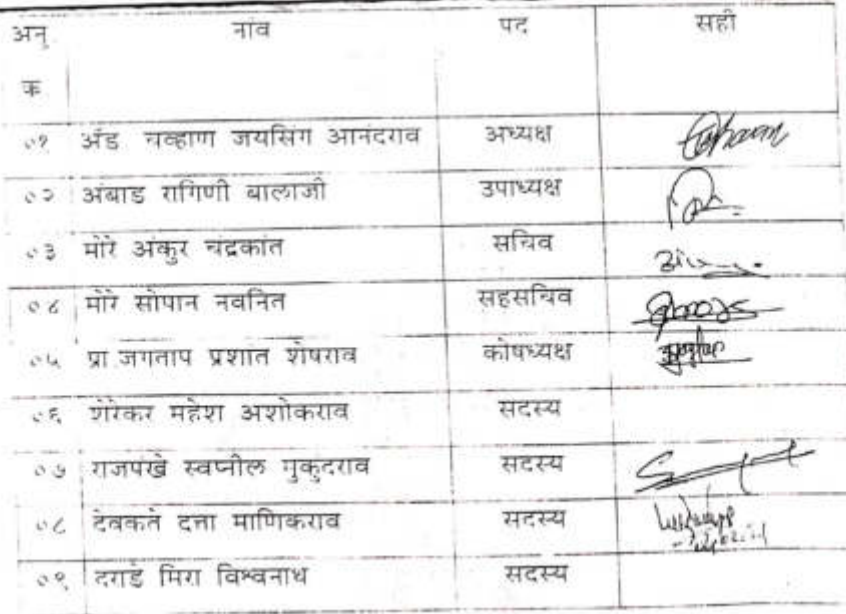 अनु नांव पद सही
क
०१ अँड चव्हाण जयसिंग आनंदराव अध्यक्ष
०२ अंबाड रागिणी बालाजी उपाध्यक्ष
०३ मोरे अंकुर चंद्रकांत सचिव
०४ मोरे सोपान नवनित सहसचिव
०५ प्रा.जगताप प्रशांत शेषराव कोषध्यक्ष
०६ शेरेकर महेश अशोकराव सदस्य
०७ राजपंखे स्वप्नील मुकुंदराव सदस्य
०८ देवकते दत्ता माणिकराव सदस्य
०९ दराडे मिरा विश्वनाथ सदस्य